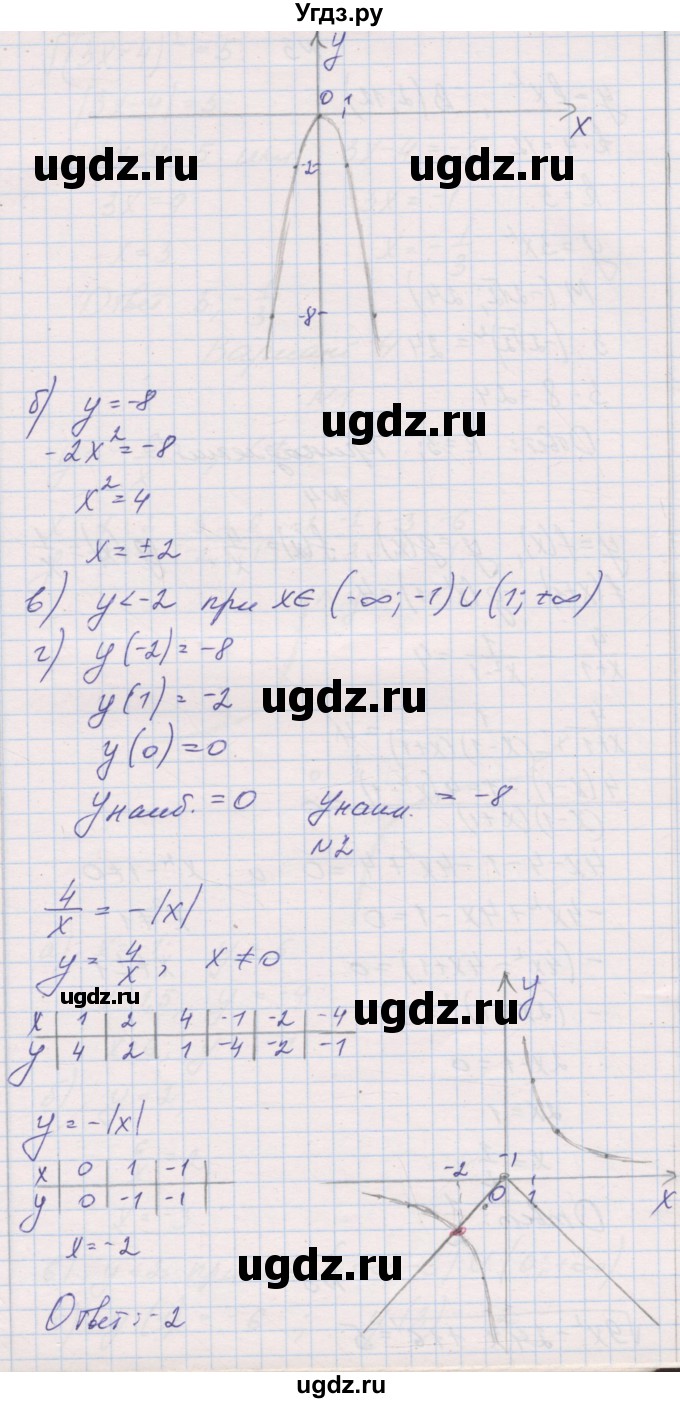 Угдз.ру
y
0 1
x
ugdz.ru ugdz.ru
-2
-8
б) y = -8
ugdz.ru
-2x² = -8
x² = 4
x = ±2
в) y < -2 при x ∈ (-∞; -1) ∪ (1; +∞)
г) y(-2) = -8
ugdz.ru
y(1) = -2
y(0) = 0
yнаиб. = 0 yнаим. = -8
№2
4/x = -|x|
y = 4/x, x ≠ 0
ugdz.ru ugdz.ru
x 1 2 4 -1 -2 -4
y 4 2 1 -4 -2 -1
y
y = -|x|
x 0 1 -1
y 0 -1 -1
-2 -1
0 1 x
x = -2
ugdz.ru
Ответ: -2
ugdz.ru